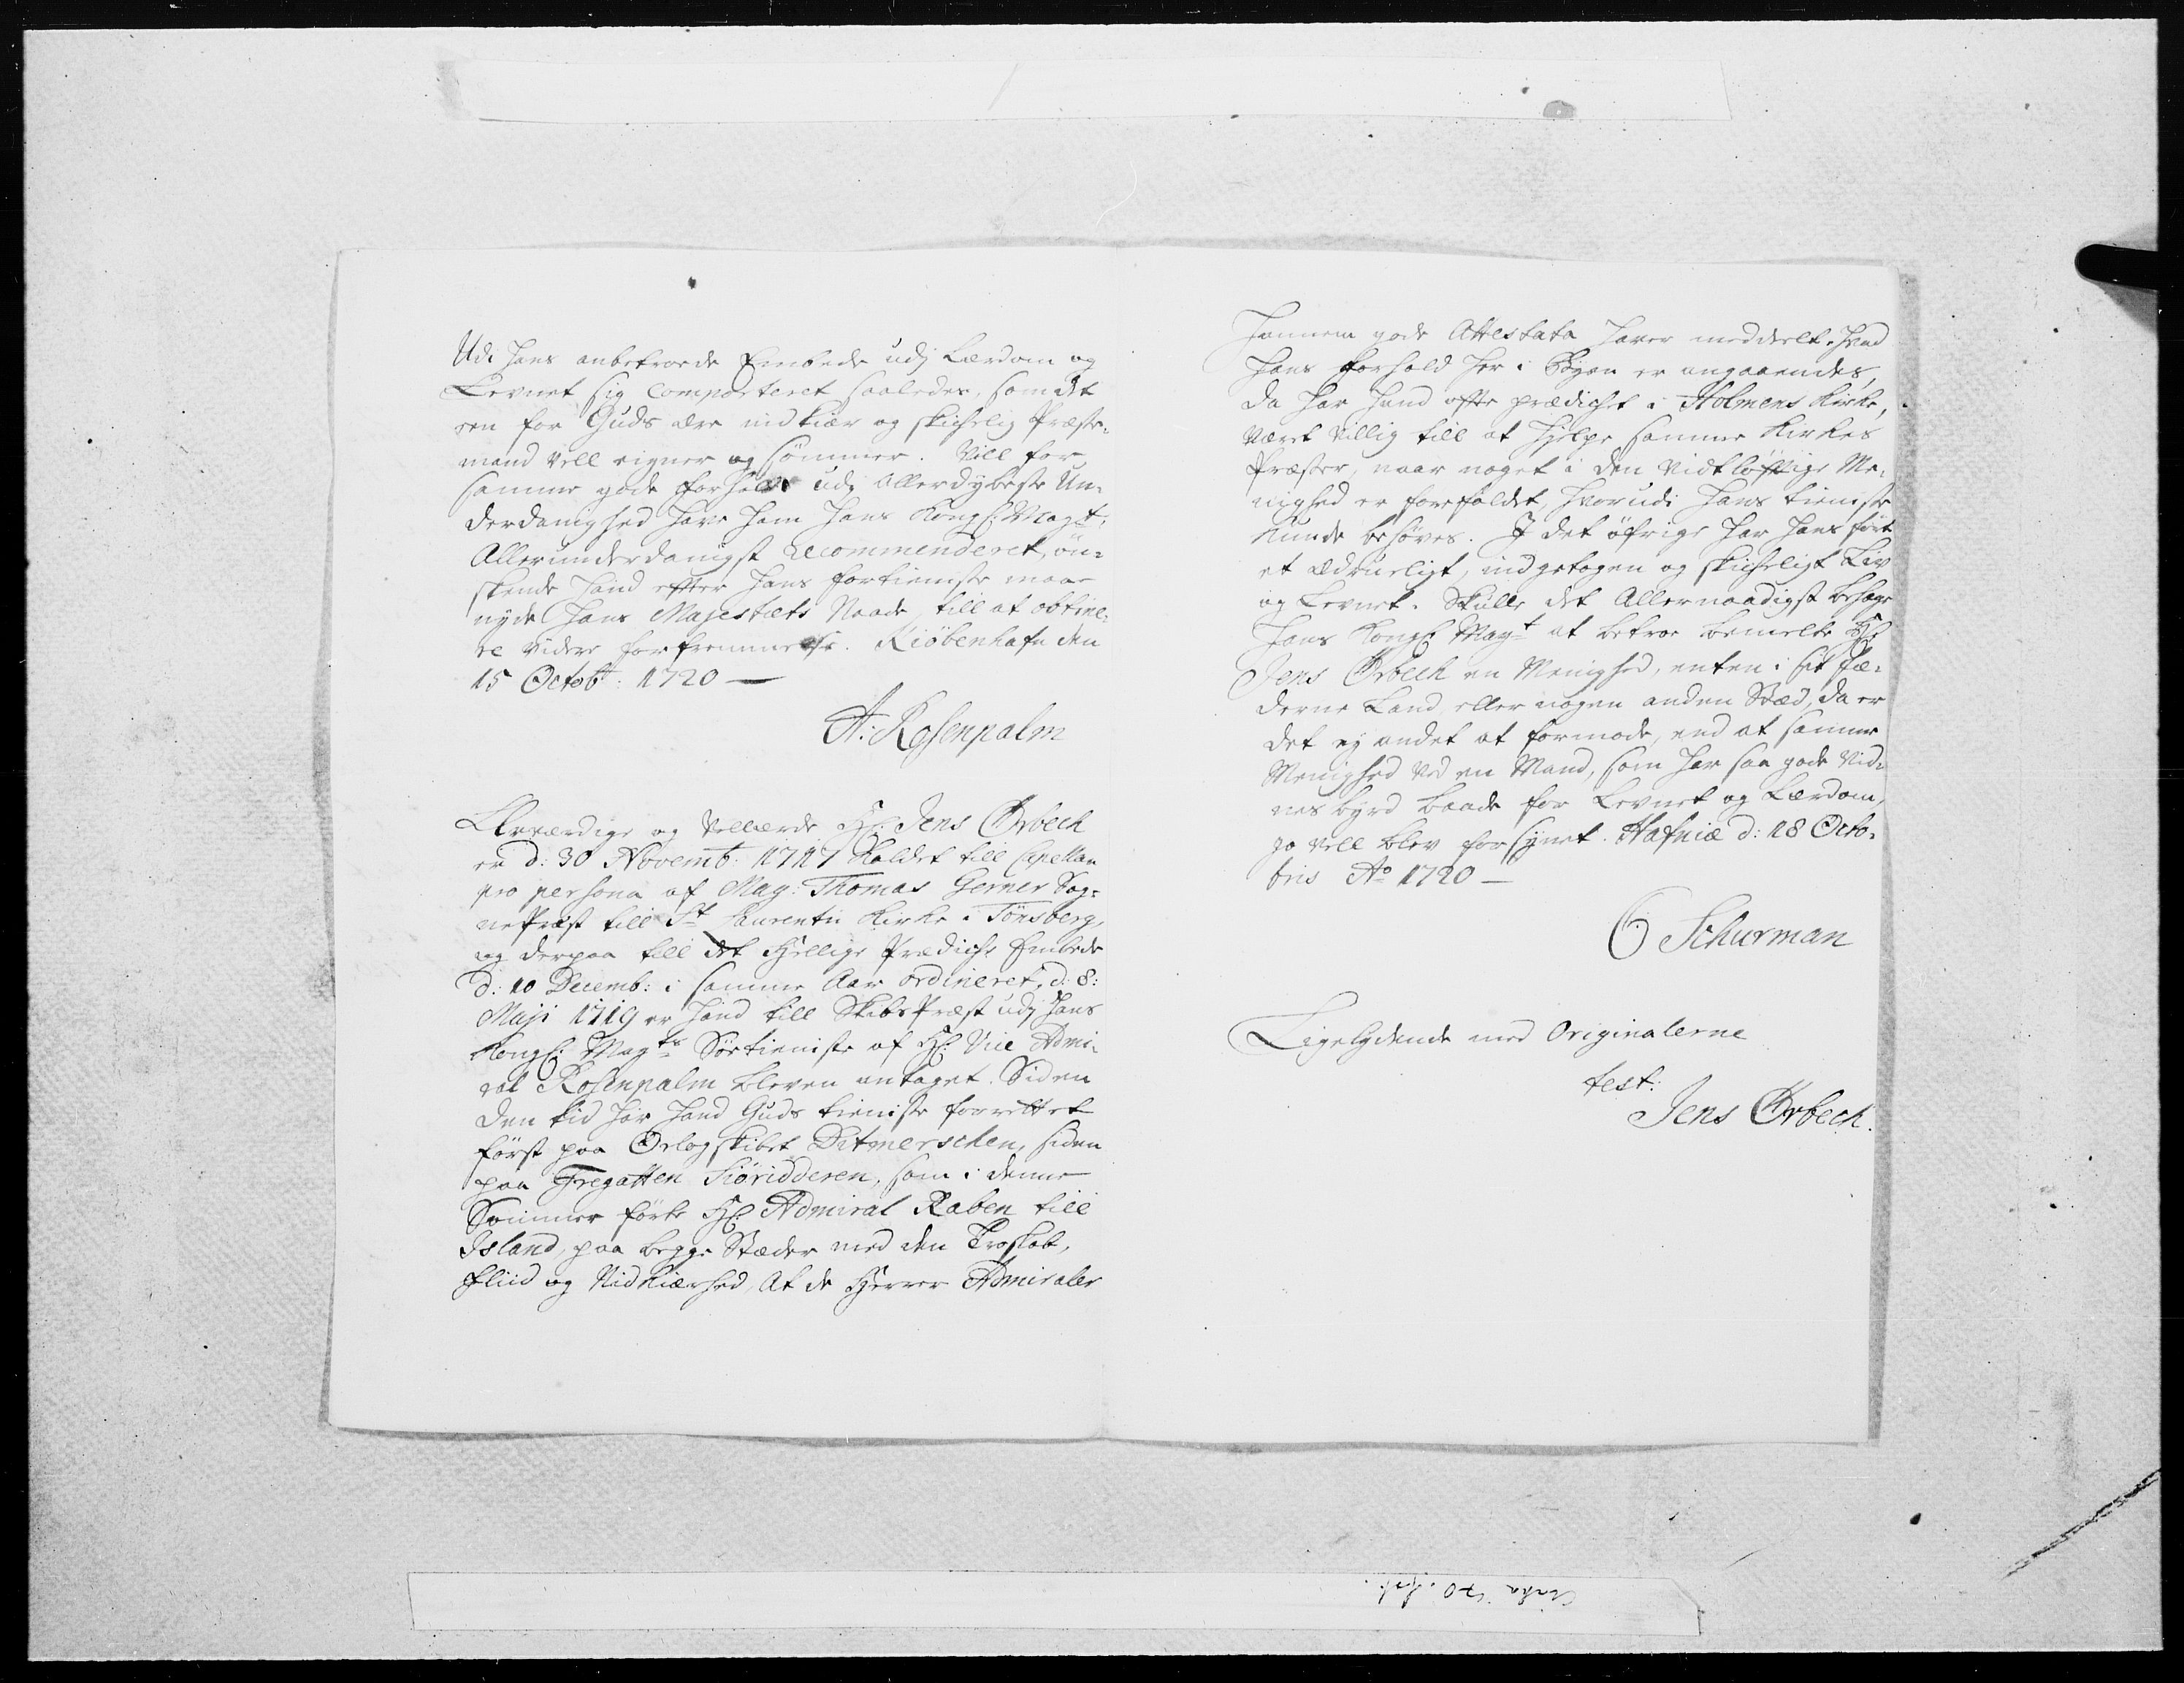 Udi hans anbetroede Embede udj Lærdom og
Levnet sig comporteret saaledes, som det
een for Guds ære nidkiær og skichelig Præste-
mand vell eigner og sømmer. Vill for
samme gode forhold udj allerdybeste Un-
derdanighed have ham Hans Kongl: Mayt:
Allerunderdanigst Recommenderet, øn-
skende hand efter hans fortieniste maae
nyde Hans Majestæts Naade till at obtine-
re videre forfremmelse. Kiöbenhafn den
15 Octobr: 1720
A: Rosenpalm
Ærværdige og Vellærde Hr: Jens Ørbech
er d: 30 Novemb: 1717 kaldet till Capellan
pro persona af Mag: Thomas Gerner Sog-
nePræst till St Laurentii Kirke i Tönsberg,
og derpaa till det Hellige Prædiche Embede
d: 10 Decemb: i samme Aar ordineret, d: 8:
Maji 1719 er hand till SkibsPræst udj Hans
Kongl: Mayts Søetieniste af Hr: Vice Admi-
ral Rosenpalm bleven antaget. Siden
den tid har hand Guds tieniste forrettet
først paa Orlogskibet Ditmerschen, siden
paa Fregatten Siöridderen, som i denne
Sommer förte Hr: Admiral Raben till
Island, paa begge Stæder med den Troskab,
Fliid og Nidkiærhed, At de Herrer Admiraler
hannem gode Attestata haver meddeelt. Hvad
hans forhold her i Byen er angaaendes,
da har hand ofte prædichet i Holmens Kirke,
været villig till at hielpe samme Kirkes
Præster, naar noget i den vidtløftige Me-
nighed er forefaldet, hvorudi hans tieniste
kunde behøves. I det øfrige har hans ført
et ædrueligt, indgetogen og skicheligt Liv
og Levnet. Skulle det Allernaadigst behage
Hans Kongl: Mayt at betroe bemelte Hr:
Jens Ørbech en Menighed, enten i sit Fæ-
derne Land eller nogen anden Stæd, da er
det ej andet at formode, end at samme
Menighed ved en Mand, som har saa gode Vid-
nes byrd baade for Levnet og Lærdom,
jo vell blev forsynet. Hafniæ d: 18 Octo-
bris Ao 1720
O Schurman
Ligelydende med Originalerne
test:
Jens Ørbech.